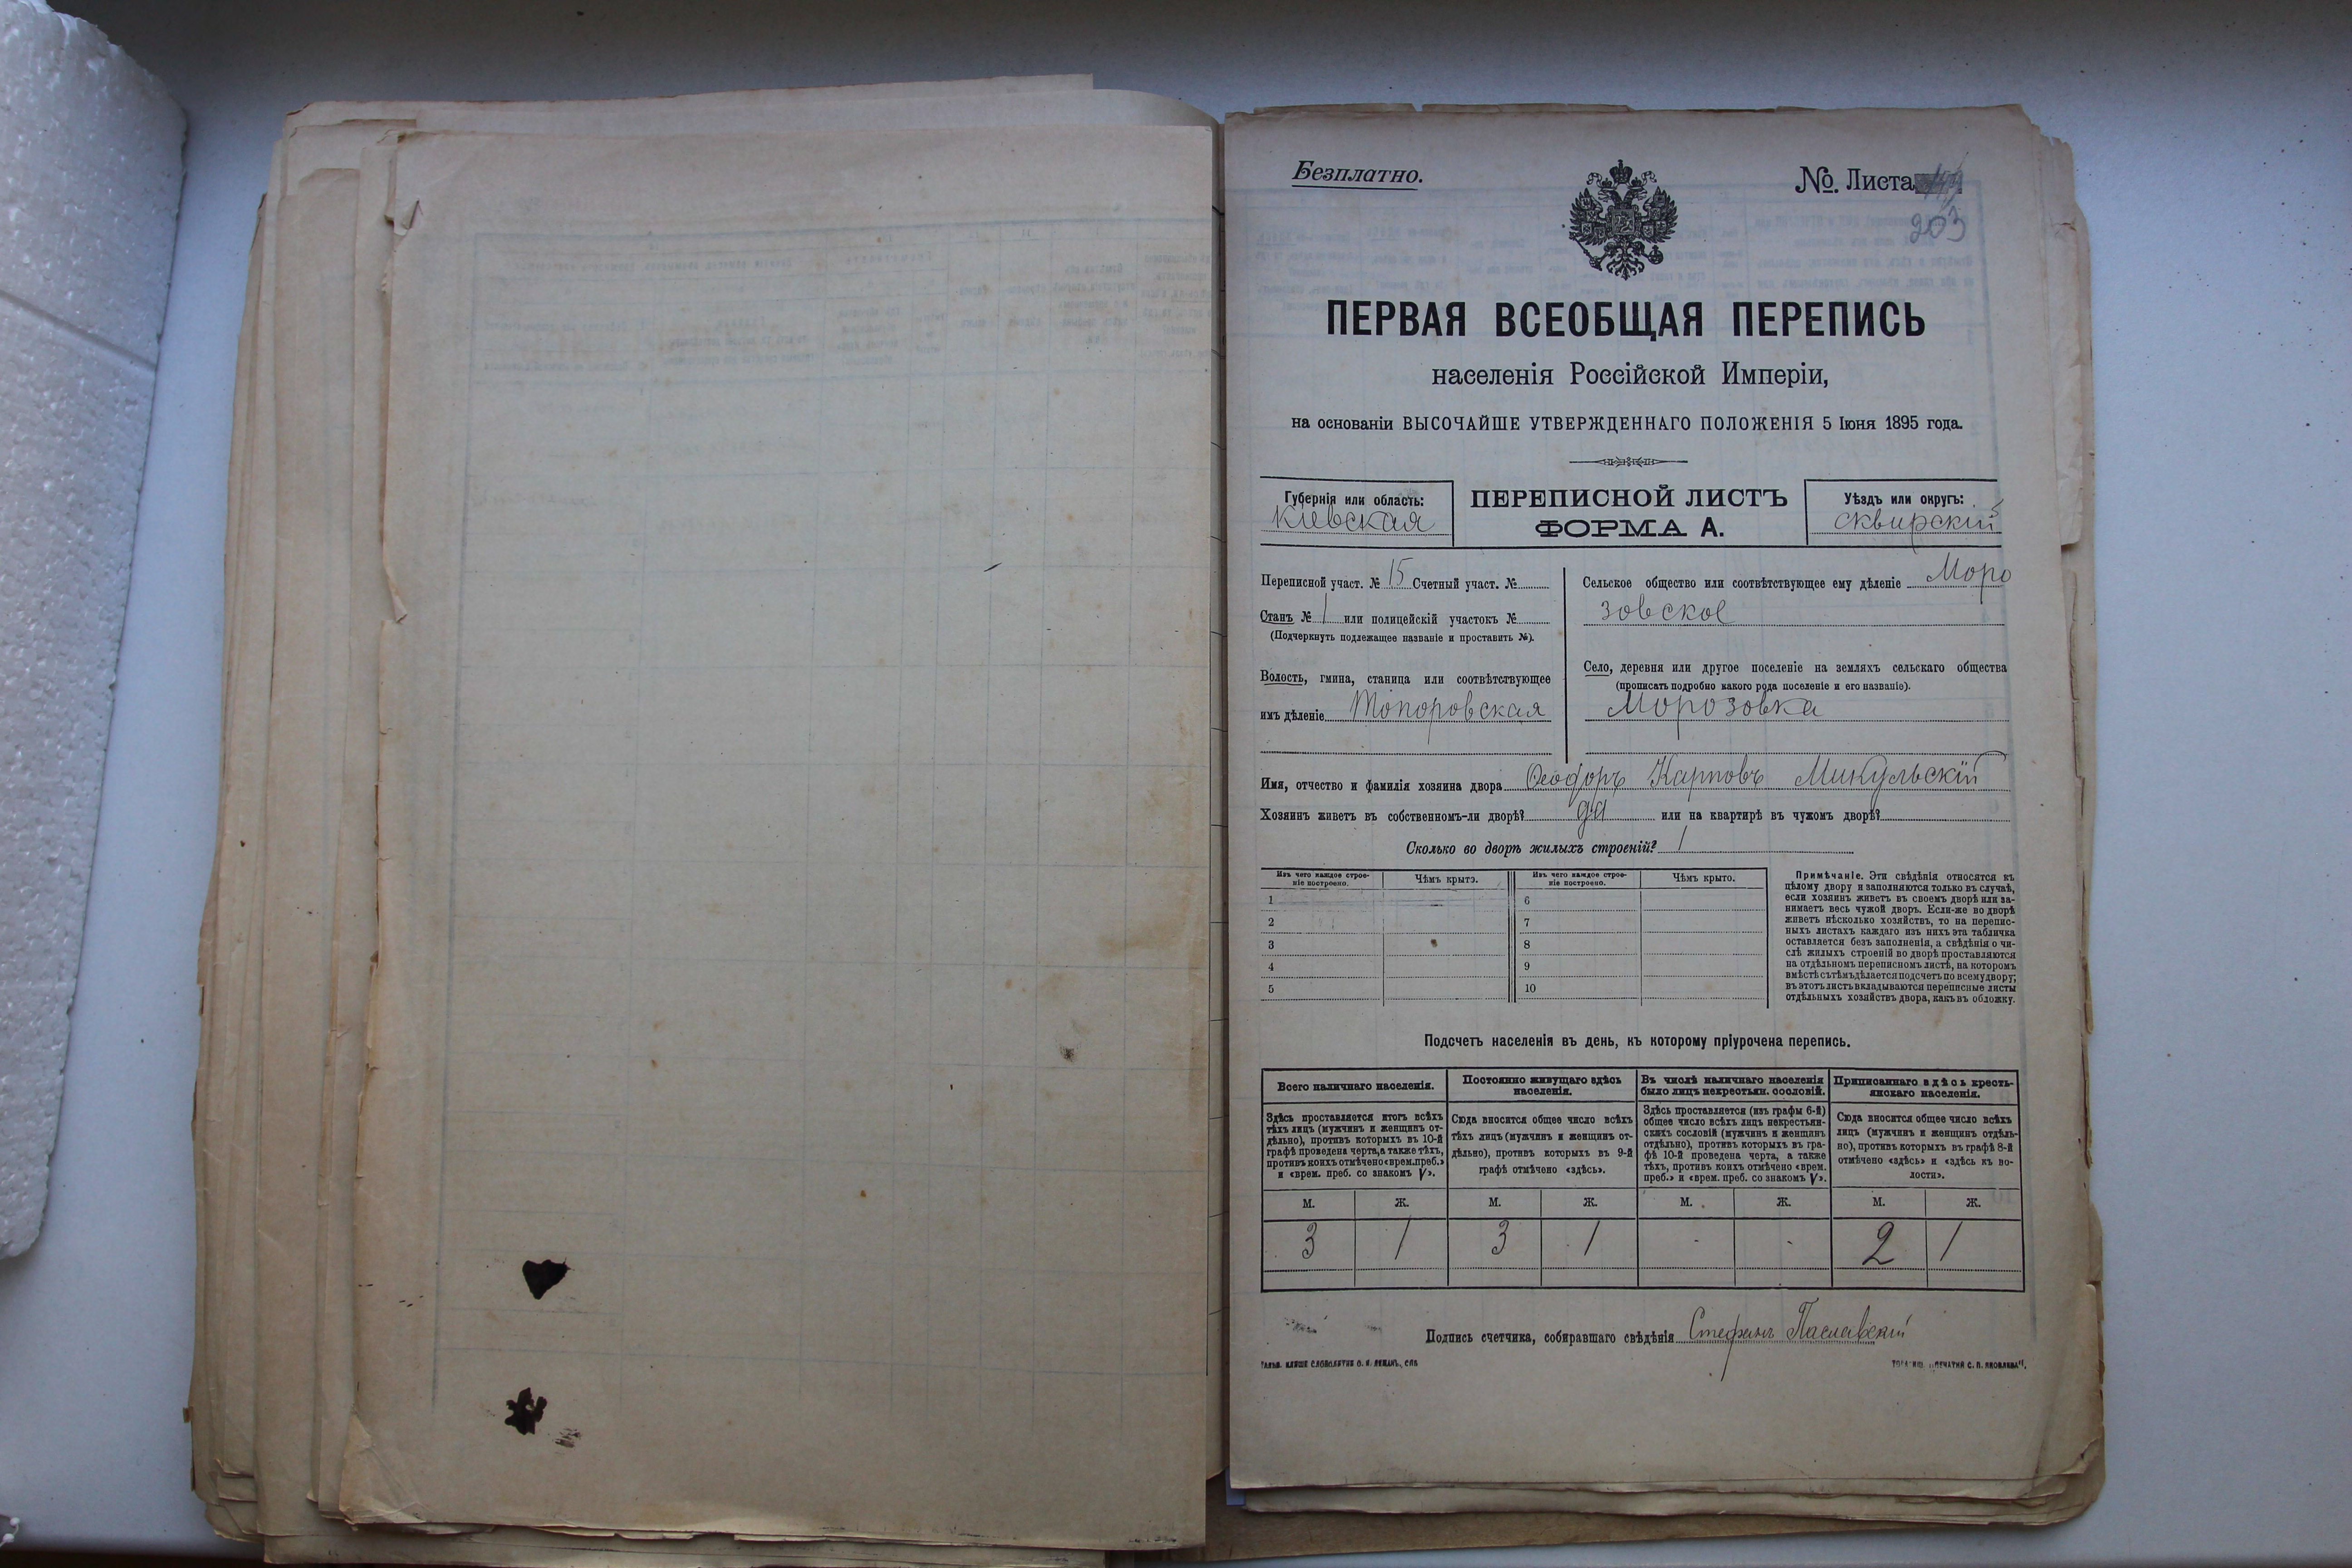 Безплатно.
№. Листа
203
ПЕРВАЯ ВСЕОБЩАЯ ПЕРЕПИСЬ
населенія Россійской Имперіи,
на основаніи ВЫСОЧАЙШЕ УТВЕРЖДЕННАГО ПОЛОЖЕНІЯ 5 Іюня 1895 года.
Губернія или область:
Кіевская
ПЕРЕПИСНОЙ ЛИСТЪ
ФОРМА А.
Уѣздъ или округъ:
сквирскій
Переписной участ. № 15 Счетный участ. №
Станъ № 1 или полицейскій участокъ №
(Подчеркнуть подлежащее названіе и проставить №).
Волость, гмина, станица или соотвѣтствующее
имъ дѣленіе Топоровская
Сельское общество или соотвѣтствующее ему дѣленіе Моро
зовское
Село, деревня или другое поселеніе на земляхъ сельскаго общества
(прописать подробно какого рода поселеніе и его названіе).
Морозовка
Имя, отчество и фамилія хозяина двора Феодоръ Карповъ Микульскій
Хозяинъ живетъ въ собственномъ-ли дворѣ? да или на квартирѣ въ чужомъ дворѣ?
Сколько во дворѣ жилыхъ строеній? 1
Изъ чего каждое строе-
ніе построено.
Чѣмъ крыто.
Изъ чего каждое строе-
ніе построено.
Чѣмъ крыто.
1 6
2 7
3 8
4 9
5 10
Примѣчаніе. Эти свѣдѣнія относятся къ
цѣлому двору и заполняются только въ случаѣ,
если хозяинъ живетъ въ своемъ дворѣ или за-
нимаетъ весь чужой дворъ. Если-же во дворѣ
живетъ нѣсколько хозяйствъ, то на перепис-
ныхъ листахъ каждаго изъ нихъ эта табличка
оставляется безъ заполненія, а свѣдѣнія о чи-
слѣ жилыхъ строеній во дворѣ проставляются
на отдѣльномъ переписномъ листѣ, на которомъ
вмѣстѣ съ тѣмъ дѣлается подсчетъ по всему двору;
въ этотъ листъ вкладываются переписные листы
отдѣльныхъ хозяйствъ двора, какъ въ обложку.
Подсчетъ населенія въ день, къ которому пріурочена перепись.
Всего наличнаго населенія.
Здѣсь проставляется итогъ всѣхъ
тѣхъ лицъ (мужчинъ и женщинъ от-
дѣльно), противъ которыхъ въ 10-й
графѣ проведена черта, а также тѣхъ,
противъ коихъ отмѣчено «врем. преб.»
и «врем. преб. со знакомъ V».
Постоянно живущаго здѣсь
населенія.
Сюда вносится общее число всѣхъ
тѣхъ лицъ (мужчинъ и женщинъ от-
дѣльно), противъ которыхъ въ 9-й
графѣ отмѣчено «здѣсь».
Въ числѣ наличнаго населенія
было лицъ некрестьян. сословій.
Здѣсь проставляется (изъ графы 6-й)
общее число всѣхъ лицъ некрестьян-
скихъ сословій (мужчинъ и женщинъ
отдѣльно), противъ которыхъ въ гра-
фѣ 10-й проведена черта, а также
тѣхъ, противъ коихъ отмѣчено «врем.
преб.» и «врем. преб. со знакомъ V».
Приписаннаго здѣсь кресть-
янскаго населенія.
Сюда вносится общее число всѣхъ
лицъ (мужчинъ и женщинъ отдѣль-
но), противъ которыхъ въ графѣ 8-й
отмѣчено «здѣсь» и «здѣсь къ во-
лости».
М. Ж. М. Ж. М. Ж. М. Ж.
3 1 3 1 - - 2 1
Подпись счетчика, собиравшаго свѣдѣнія Стефанъ Паславскій